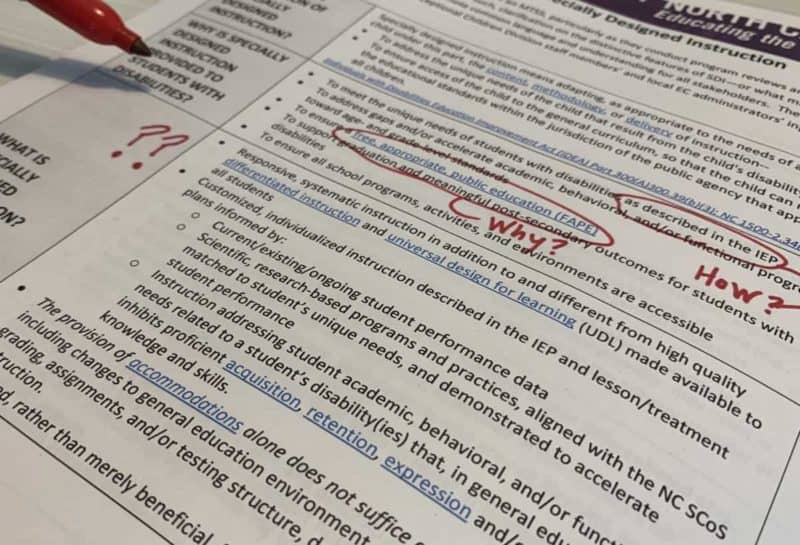 NORTH C
Educating the
ecially Designed Instruction
f so MTSS, particularly as they conduct program reviews an
clarification on the distinctive features of SDI—or what m
common vision and language for understanding for all stakeholders. The
eptional Children Division staff members' and local EC administrators' in
ON OF
IALLY
GNED
UCTION?
WHY IS SPECIALLY
DESIGNED
INSTRUCTION
PROVIDED TO
STUDENTS WITH
DISABILITIES?
Specially designed instruction means adapting, as appropriate to the needs of
under this part, the content, methodology, or delivery of instruction--
• To address the unique needs of the child that result from the child's disabilit
• To ensure access of the child to the general curriculum, so that the child can
the educational standards within the jurisdiction of the public agency that app
all children.
Individuals with Disabilities Education Improvement Act (IDEA) Part 300(A)300.39(b)(3); NC 1500-2.34
• To meet the unique needs of students with disabilities as described in the IEP
• To address gaps and/or accelerate academic, behavioral, and/or functional progre
toward age- and grade-level standards
• To ensure free, appropriate, public education (FAPE)
• To support graduation and meaningful post-secondary outcomes for students with
disabilities
• To ensure all school programs, activities, and environments are accessible
Why?
How?
??
WHAT IS
CIALLY
ED
ON?
• Responsive, systematic instruction in addition to and different from high quality
differentiated instruction and universal design for learning (UDL) made available to
all students
• Customized, individualized instruction described in the IEP and lesson/treatment
plans informed by:
o Current/existing/ongoing student performance data
o Scientific, research-based programs and practices, aligned with the NC SCoS
matched to student's unique needs, and demonstrated to accelerate
student performance
o Instruction addressing student academic, behavioral, and/or funct
needs related to a student's disability(ies) that, in general edu
inhibits proficient acquisition, retention, expression and/
knowledge and skills.
• The provision of accommodations alone does not suffice
including changes to general education environment
grading, assignments, and/or testing structure, d
ruction.
ed, rather than merely beneficial,